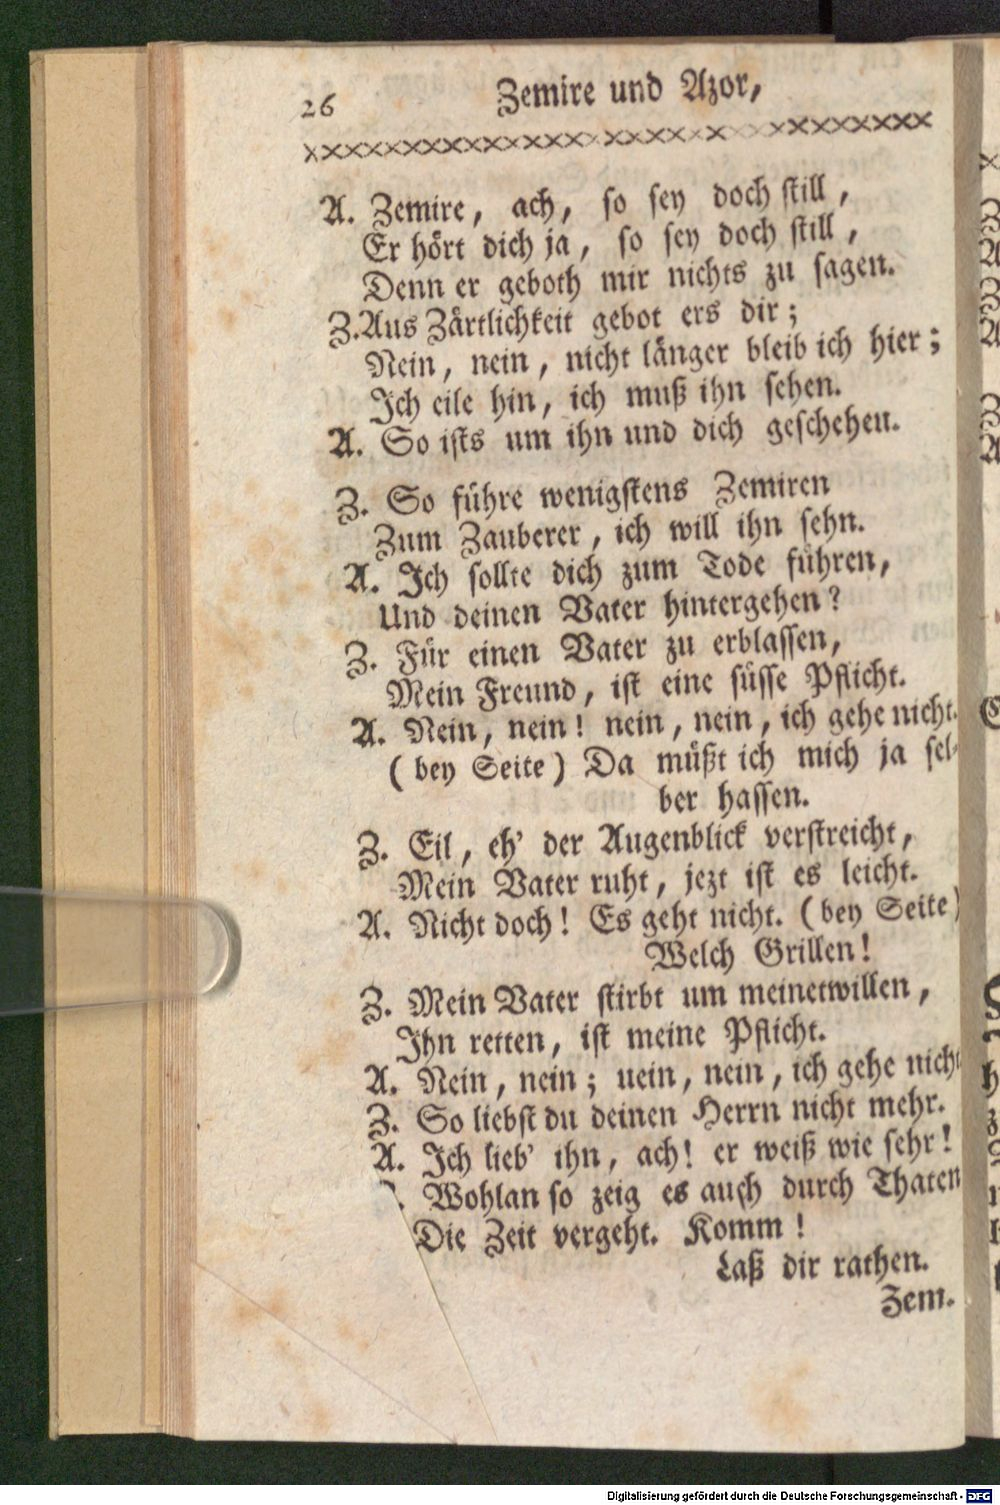 26 Zemire und Azor,
A. Zemire, ach, so sey doch still,
Er hört dich ja, so sey doch still,
Denn er geboth mir nichts zu sagen.
Z. Aus Zärtlichkeit gebot ers dir;
Nein, nein, nicht länger bleib ich hier;
Ich eile hin, ich muß ihn sehen.
A. So ists um ihn und dich geschehen.
Z. So führe wenigstens Zemiren
Zum Zauberer, ich will ihn sehn.
A. Ich sollte dich zum Tode führen,
Und deinen Vater hintergehen?
Z. Für einen Vater zu erblassen,
Mein Freund, ist eine süsse Pflicht.
A. Nein, nein! nein, nein, ich gehe nicht.
(bey Seite) Da müßt ich mich ja sel-
ber hassen.
Z. Eil, eh' der Augenblick verstreicht,
Mein Vater ruht, jezt ist es leicht.
A. Nicht doch! Es geht nicht. (bey Seite)
Welch Grillen!
Z. Mein Vater stirbt um meinetwillen,
Ihn retten, ist meine Pflicht.
A. Nein, nein; uein, nein, ich gehe nicht
Z. So liebst du deinen Herrn nicht mehr.
A. Ich lieb' ihn, ach! er weiß wie sehr!
. Wohlan so zeig es auch durch Thaten
Die Zeit vergeht. Komm!
Laß dir rathen.
Zem.
Digitalisierung gefördert durch die Deutsche Forschungsgemeinschaft - DFG